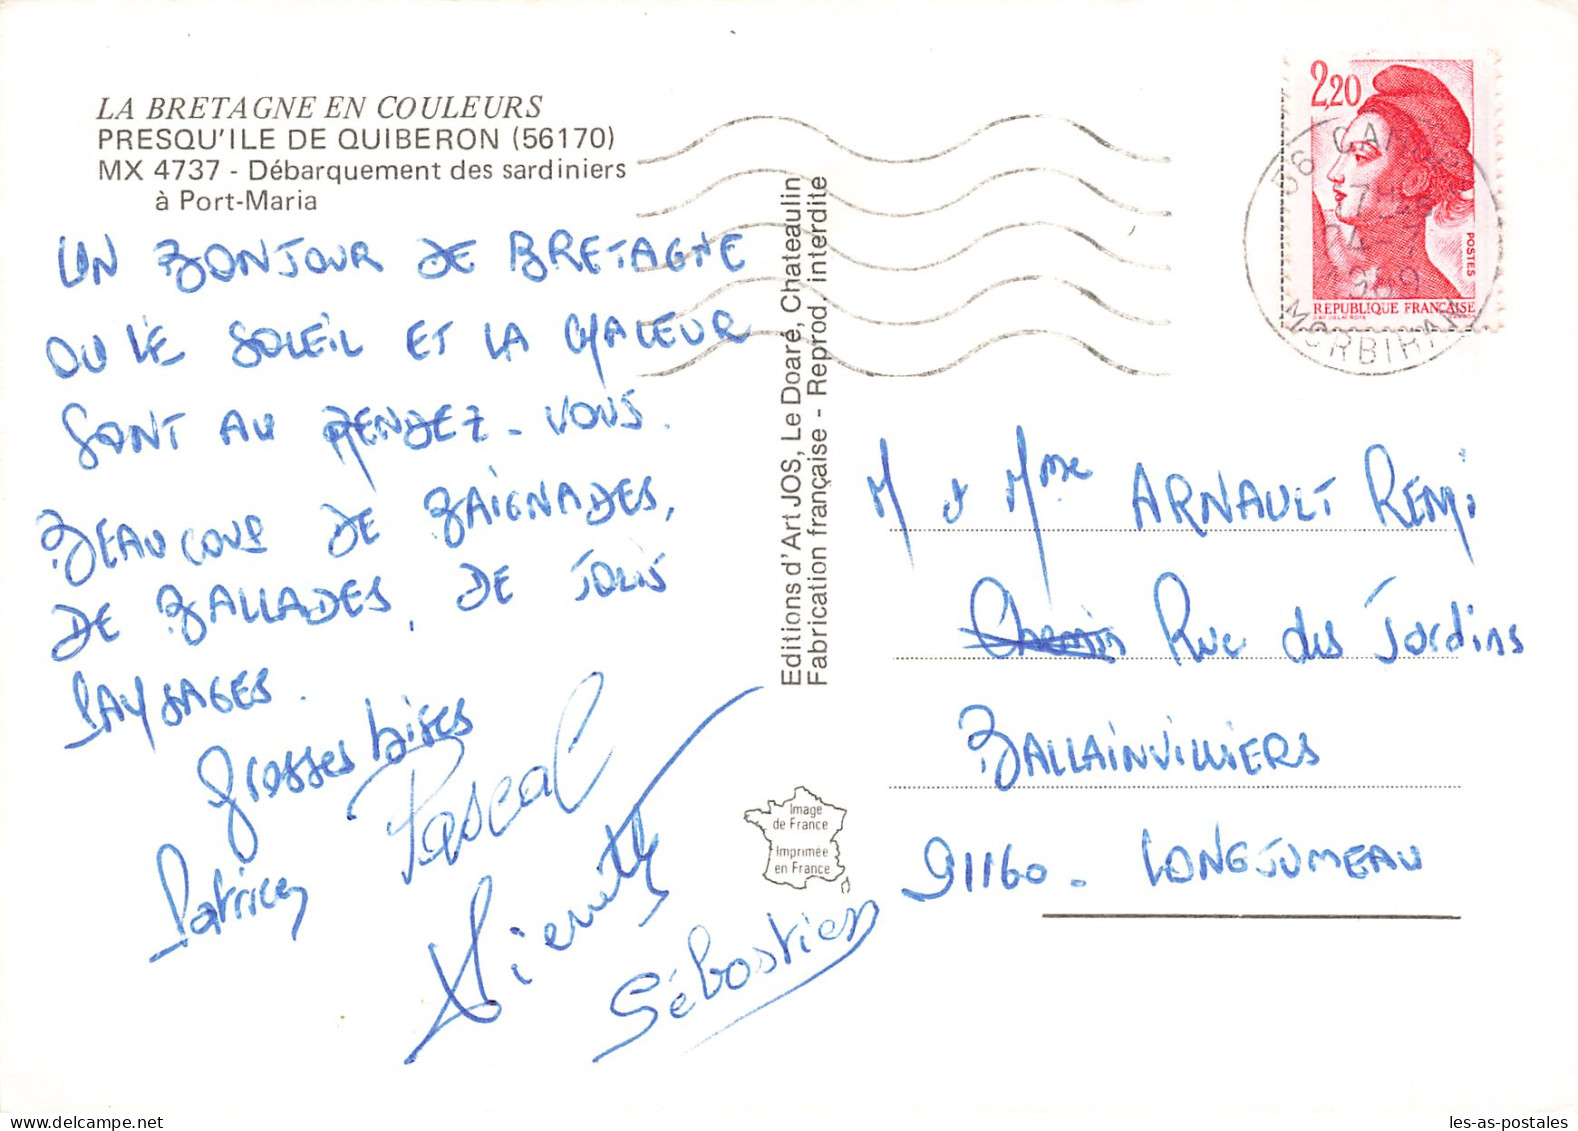 LA BRETAGNE EN COULEURS
PRESQU'ILE DE QUIBERON (56170)
MX 4737 - Débarquement des sardiniers
à Port-Maria
UN BONJOUR DE BRETAGNE
OU LE SOLEIL ET LA CHALEUR
SONT AU RENDEZ-VOUS.
BEAUCOUP DE BAIGNADES,
DE BALLADES, DE JOLIS
PAYSAGES.
Grosses bises
Pascal
Patrick
Sébastien
Editions d'Art JOS, Le Doaré, Chateaulin
Fabrication française - Reprod. interdite
Image
de France
Imprimée
en France
2,20
POSTES
REPUBLIQUE FRANÇAISE
56
1989
MORBIHAN
M & Mme ARNAULT REMI
Chemin Rue des Jardins
BALLAINVILLIERS
91160. LONGJUMEAU
les-as-postales